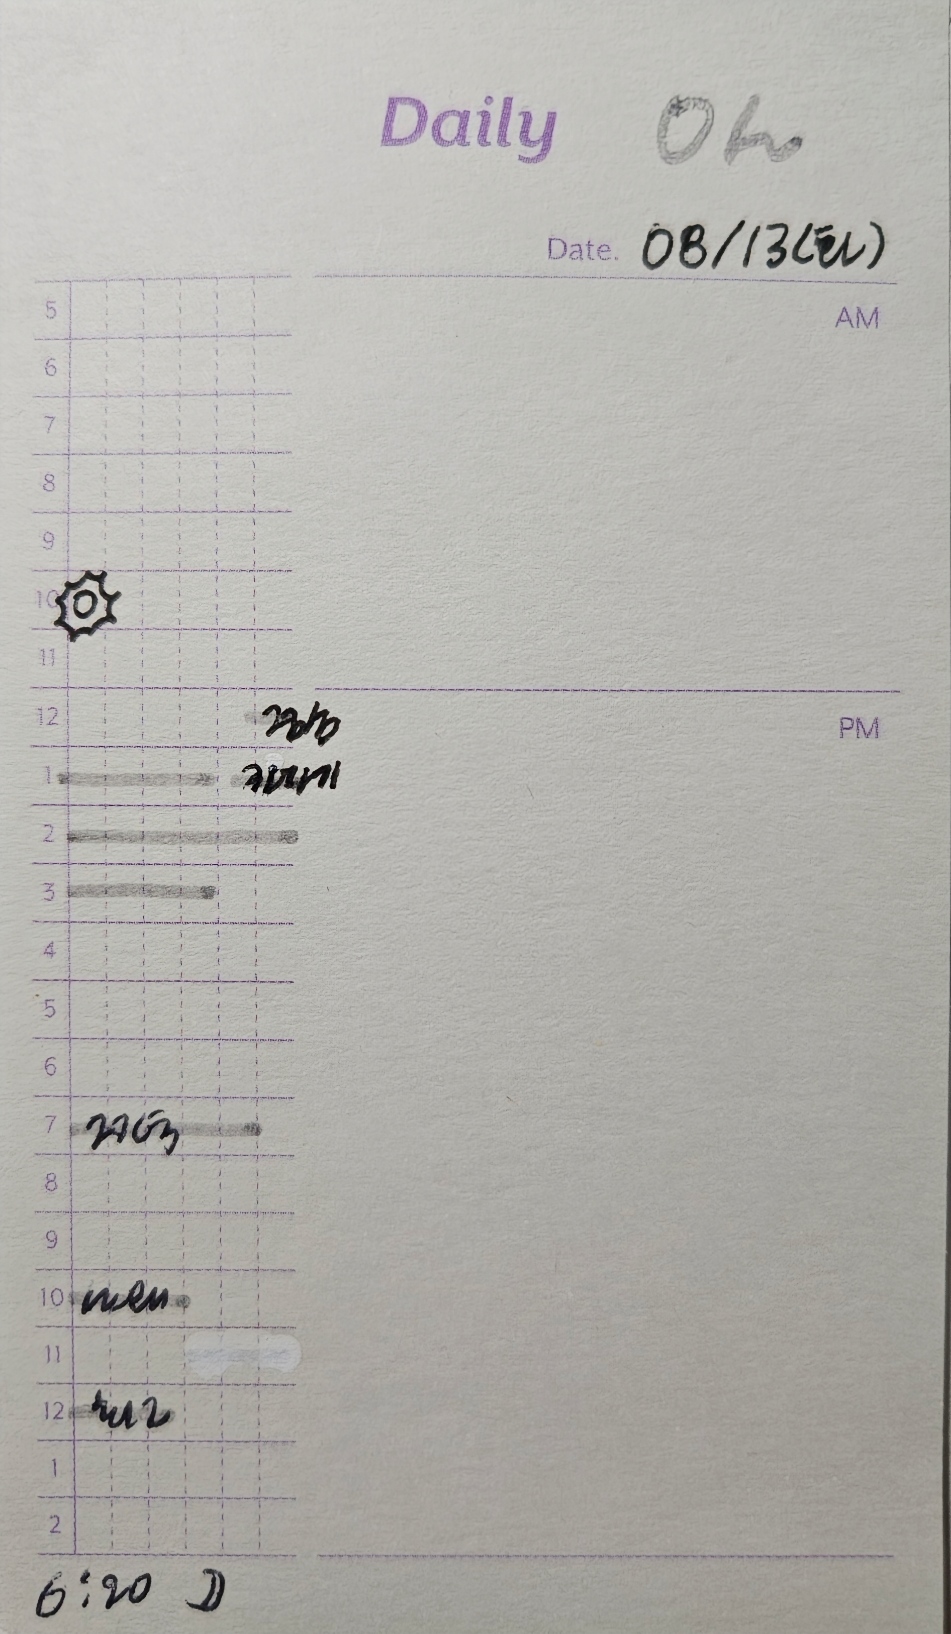 Daily Oh
Date. 08/13(화)
5
AM
6
7
8
9
10
11
12
PM
1
2
3
4
5
6
7
8
9
10
11
12
1
2
6:20 D